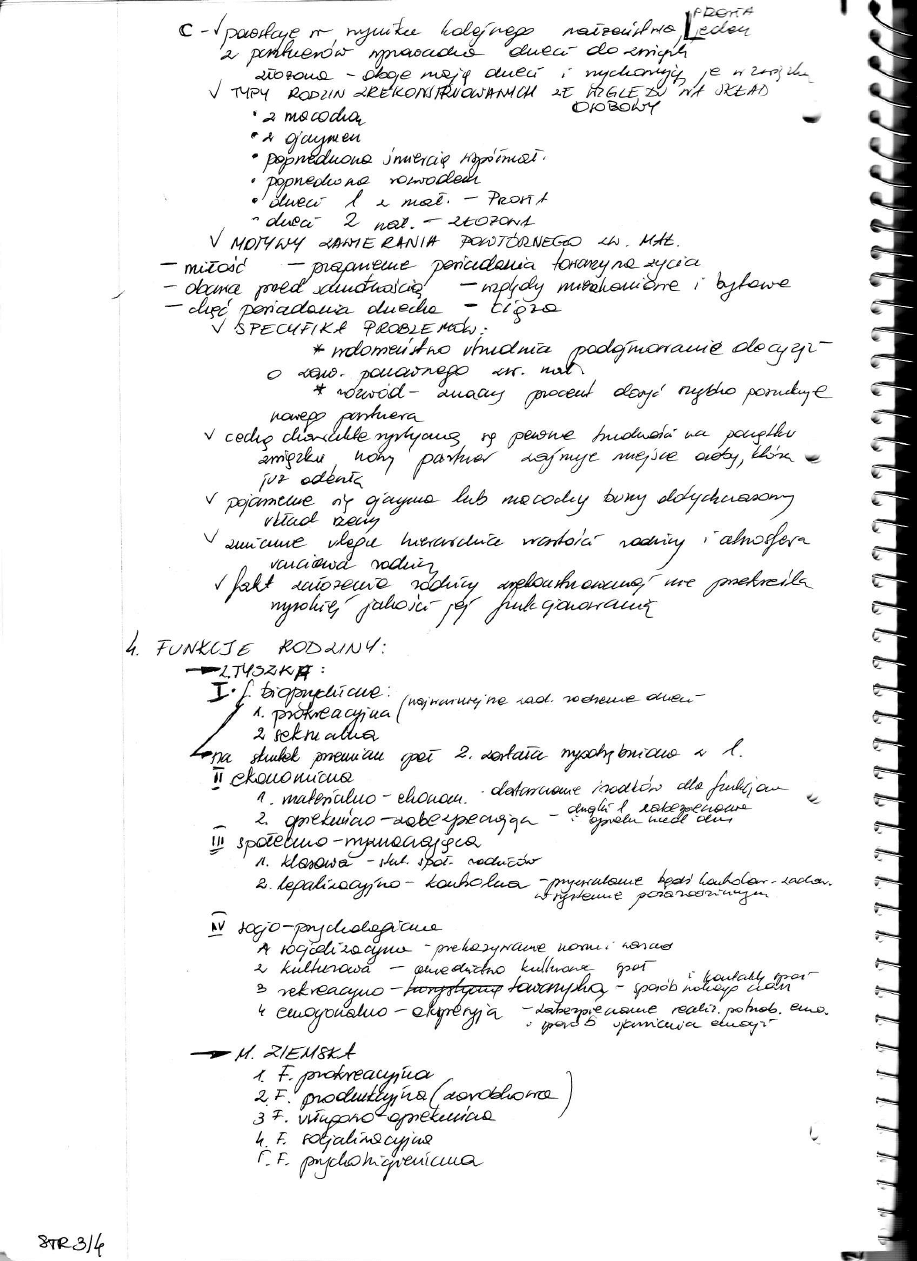 C - √ powstaje w wyniku kolejnego małżeństwa, PROSTA jeden
z partnerów wprowadza dzieci do związk
złożona - oboje mają dzieci i wychowują je w związku
√ TYPY RODZIN ZREKONSTRUOWANYCH ZE WZGLĘDU NA SKŁAD
OSOBOWY
• z macochą
• z ojczymem
• poprzedzona śmiercią współmał.
• poprzedzona rozwodem
• dzieci 1 z mał. - PROSTA
- dzieci 2 mał. - ZŁOŻONA
√ MOTYWY ZAWIERANIA POWTÓRNEGO ZW. MAŁ.
- miłość - pragnienie posiadania towarzysza życia
- obawa przed samotnością - względy mieszkaniowe i bytowe
- chęć posiadania dziecka - ciąża
√ SPECYFIKA PROBLEMÓW:
* wdowieństwo utrudnia podejmowanie decyzji
o zaw. ponownego zw. mał.
* rozwód - znaczny procent dosyć szybko poszukuje
nowego partnera
√ cechą charakterystyczną są pewne trudności na początku
związku nowy partner zajmuje miejsce osoby, która
już odeszła
√ pojawienie się ojczyma lub macochy burzy dotychczasowy
układ rzeczy
√ zmianie ulega hierarchia wartości rodziny i atmosfera
rodziny
√ fakt założenia rodziny zrekonstruowanej nie przekreśla
wysokiej jakości jej funkcjonowania
4. FUNKCJE RODZINY:
→ Z. TYSZKA:
I • f. biopsychiczna:
1. prokreacyjna (najważniejsze zad. rodzenie dzieci
2 seksualna
na skutek przemian społ 2. została wyodrębniona z 1.
II ekonomiczna
1. materialno-ekonom. - dostarczanie środków dla funkcjon
2. opiekuńczo-zabezpieczająca - zabezpieczenie
i opieka
III społeczno-wyznaczająca
1. klasowa - społ. rodziców
2. legalizacyjno-kontrolna - zachow.
w systemie pozarodzinnym
IV socjo-psychologiczna
1 socjalizacyjna - przekazywanie norm i
2 kulturowa - dziedzictwo kulturowe społ
3 rekreacyjno - turystyczna towarzyska - sposób i kontakty społ
4 emocjonalno - ekspresyja - zabezpieczenie realiz. potrzeb. emo.
i sposób ujawnienia emocji
→ M. ZIEMSKA
1. F. prokreacyjna
2. F. produkcyjna (zarobkowa)
3 F. usługowo-opiekuńcza
4. F. socjalizacyjna
5. F. psychohigieniczna
STR 3/4